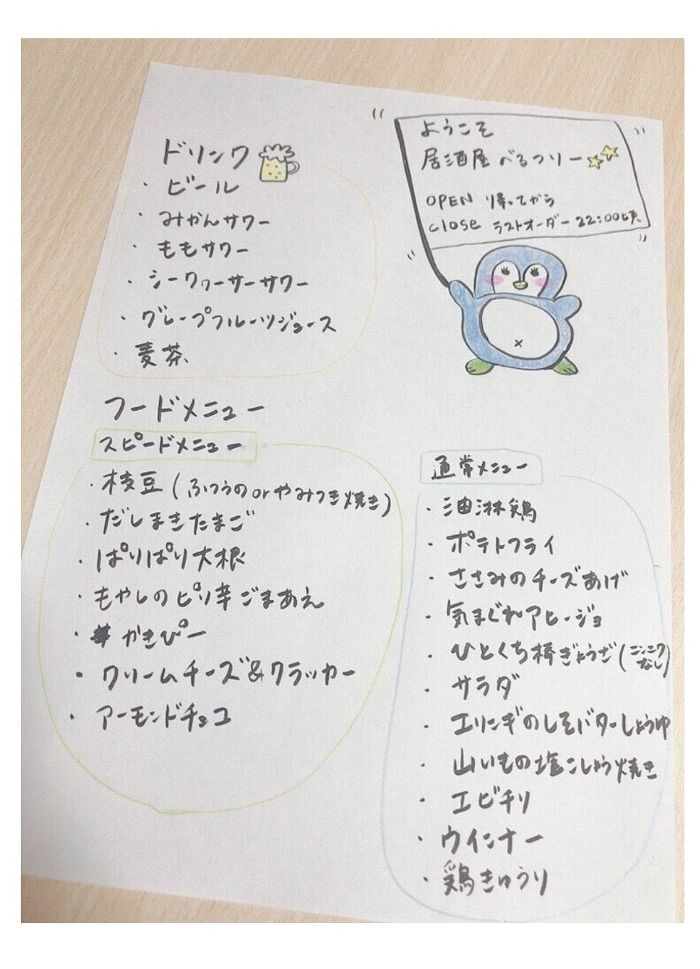 ようこそ
居酒屋べるつりー
OPEN 帰ってから
close ラストオーダー 22:00頃
ドリンク
・ビール
・みかんサワー
・ももサワー
・シークヮーサーサワー
・グレープフルーツジュース
・麦茶
フードメニュー
スピードメニュー
・枝豆(ふつうのorやみつき焼き)
・だしまきたまご
・ぱりぱり大根
・もやしのピリ辛ごまあえ
・かきぴー
・クリームチーズ&クラッカー
・アーモンドチョコ
通常メニュー
・油淋鶏
・ポテトフライ
・ささみのチーズあげ
・気まぐれアヒージョ
・ひとくち棒ぎょうざ(ニンニクなし)
・サラダ
・エリンギのしそバターしょうゆ
・山いもの塩こしょう焼き
・エビチリ
・ウインナー
・鶏きゅうり